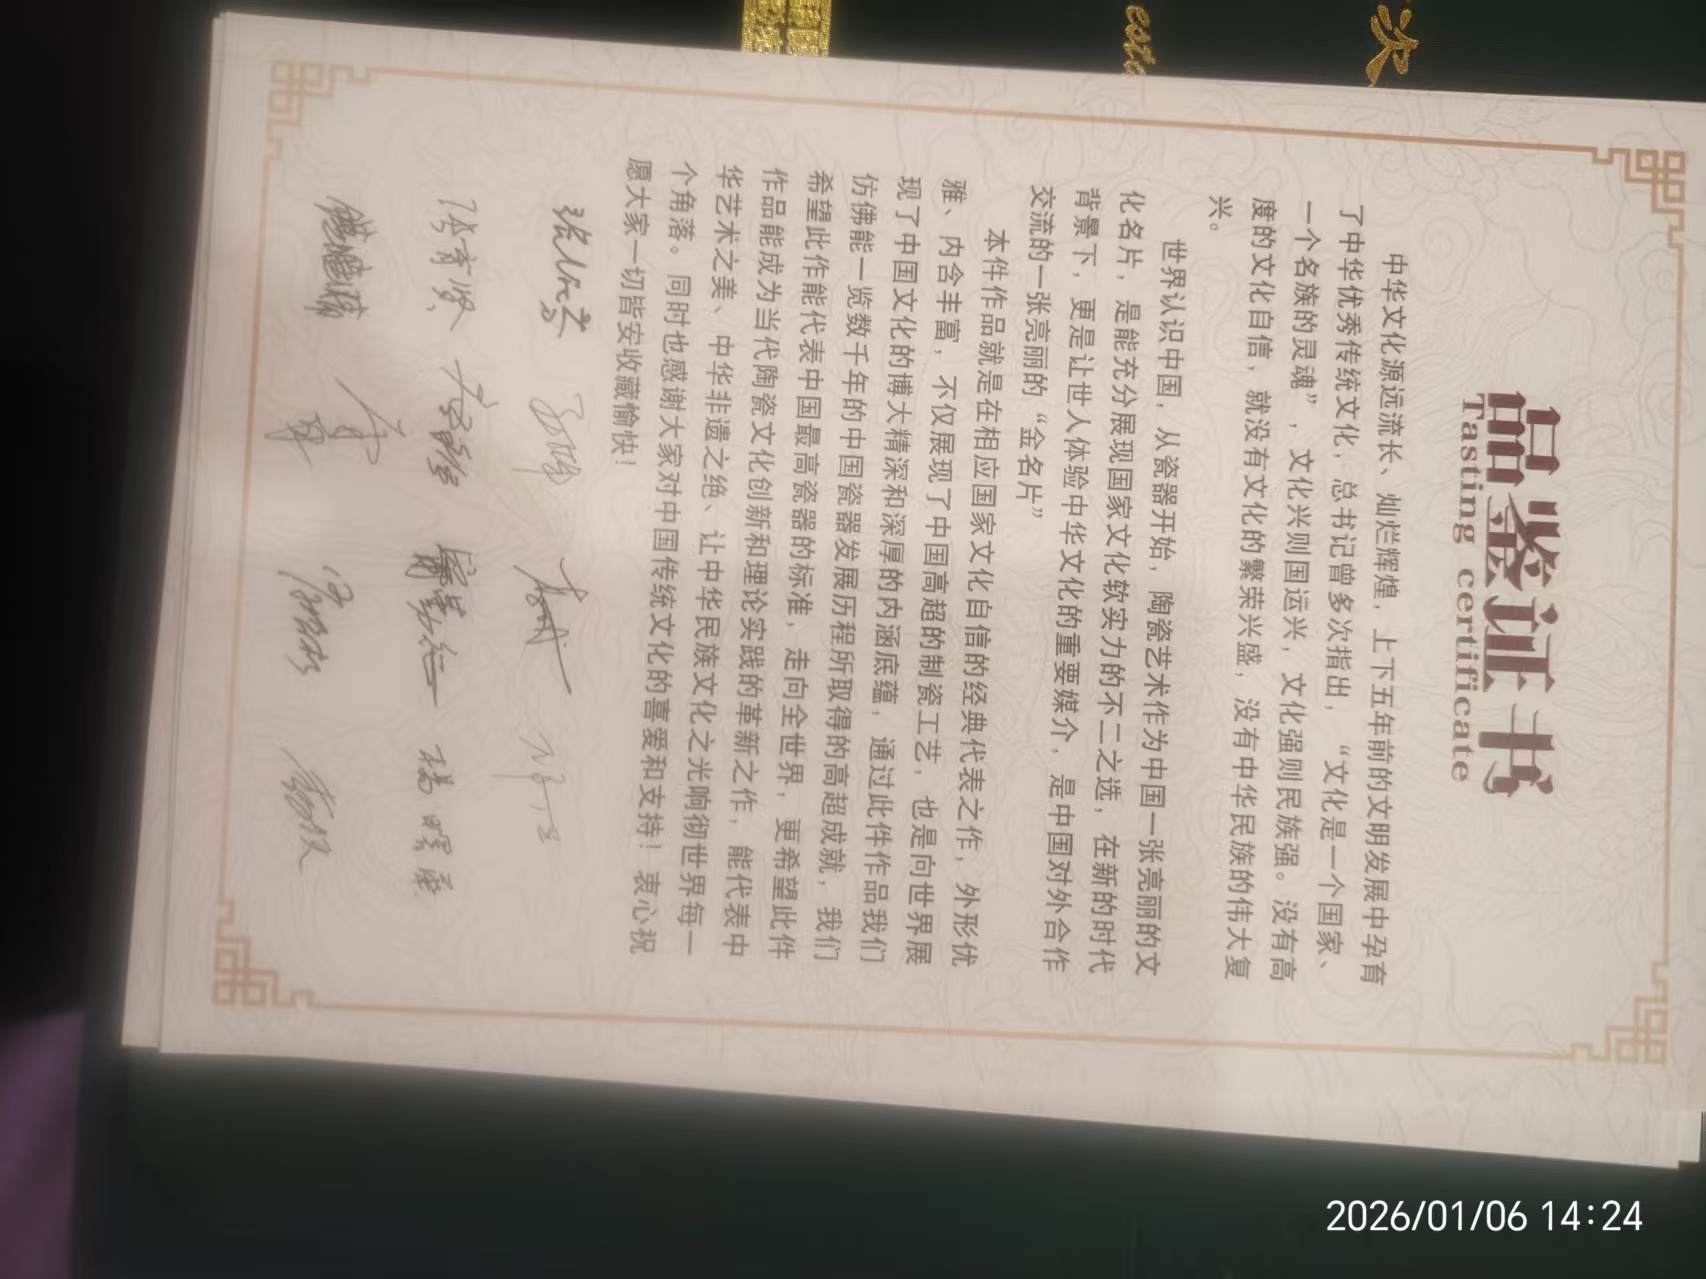 品鉴证书
Tasting certificate
中华文化源远流长、灿烂辉煌，上下五年前的文明发展中孕育
了中华优秀传统文化，总书记曾多次指出，“文化是一个国家、
一个名族的灵魂”，文化兴则国运兴，文化强则民族强。没有高
度的文化自信，就没有文化的繁荣兴盛，没有中华民族的伟大复
兴。
世界认识中国，从瓷器开始，陶瓷艺术作为中国一张亮丽的文
化名片，是能充分展现国家文化软实力的不二之选，在新的时代
背景下，更是让世人体验中华文化的重要媒介，是中国对外合作
交流的一张亮丽的“金名片”
本件作品就是在相应国家文化自信的经典代表之作，外形优
雅、内含丰富，不仅展现了中国高超的制瓷工艺，也是向世界展
现了中国文化的博大精深和深厚的内涵底蕴，通过此件作品我们
仿佛能一览数千年的中国瓷器发展历程所取得的高超成就，我们
希望此作能代表中国最高瓷器的标准，走向全世界，更希望此件
作品能成为当代陶瓷文化创新和理论实践的革新之作，能代表中
华艺术之美、中华非遗之绝、让中华民族文化之光响彻世界每一
个角落。同时也感谢大家对中国传统文化的喜爱和支持！衷心祝
愿大家一切皆安收藏愉快！
2026/01/06 14:24